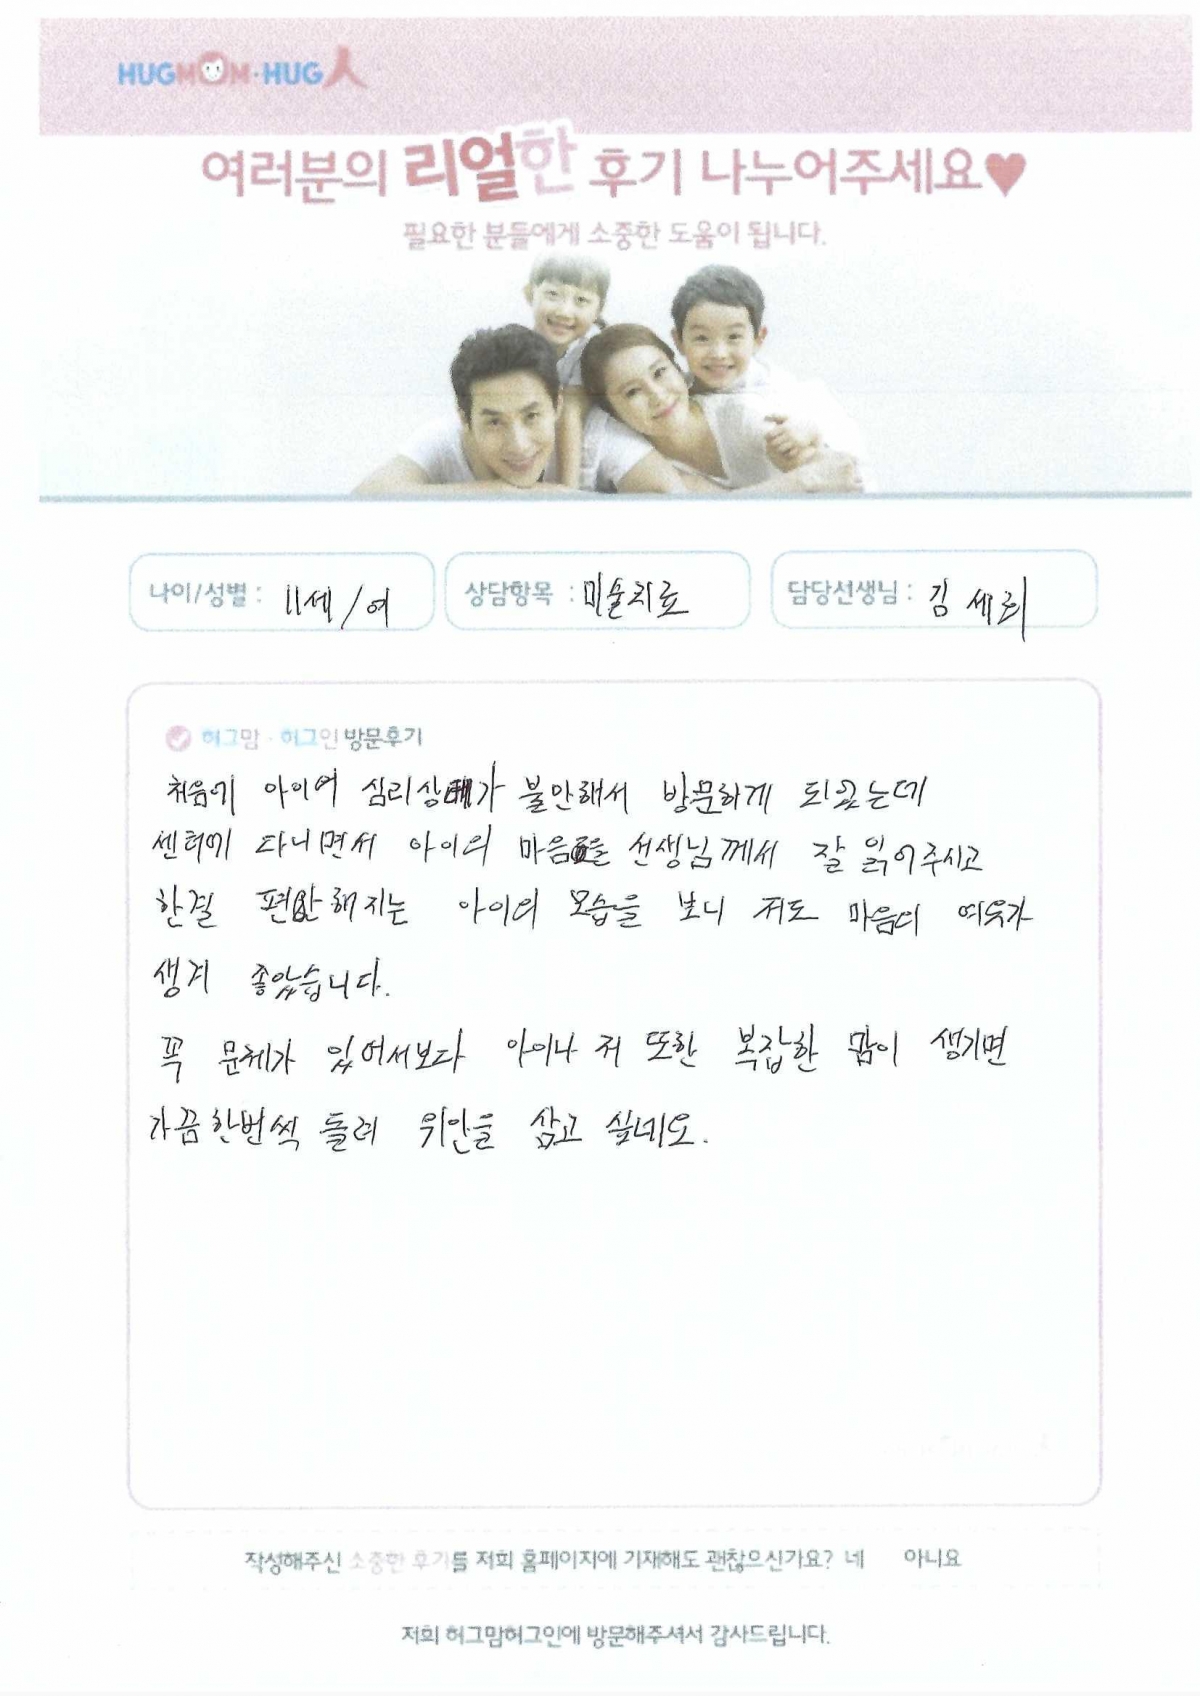 HUGMOM·HUG人
여러분의 리얼한 후기 나누어주세요♥
필요한 분들에게 소중한 도움이 됩니다.
나이/성별 : 11세/여 상담항목 : 미술치료 담당선생님 : 김세희
허그맘·허그인 방문후기
처음에 아이여 심리상태가 불안해서 방문하게 되었는데
센터에 다니면서 아이의 마음을 선생님께서 잘 읽어주시고
한결 편안해지는 아이의 모습을 보니 저도 마음의 여유가
생겨 좋았습니다.
꼭 문제가 있어서보다 아이나 저 또한 복잡한 맘이 생기면
가끔한번씩 들려 위안을 삼고 싶네요.
작성해주신 소중한 후기를 저희 홈페이지에 기재해도 괜찮으신가요? 네 아니요
저희 허그맘허그인에 방문해주셔서 감사드립니다.